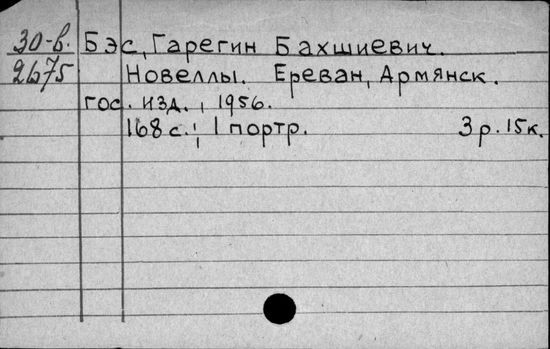 30-в. Бэс, Гарегин Бахшиевич.
2675 Новеллы. Ереван, Армянск.
гос. изд., 1956.
168 с.; 1 портр. 3 р. 15 к.